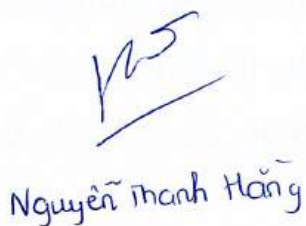 Nguyễn Thanh Hằng